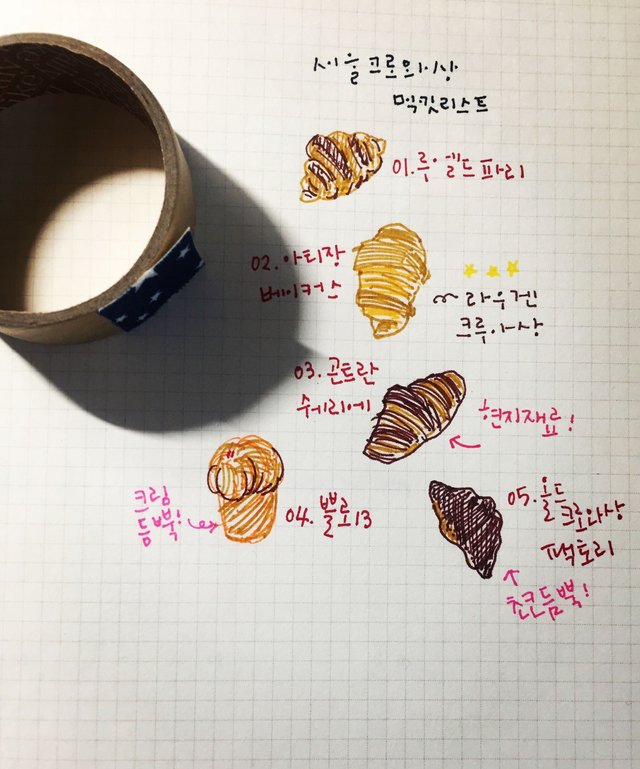 서울크로와상
먹킷리스트
01. 루·엘드파리
02. 아티장
베이커스
라우겐
크루아상
03. 곤트란
쉐리에
현지재료!
크림
듬뿍!
04. 뽈로13
05. 올드
크로와상
팩토리
초코듬뿍!